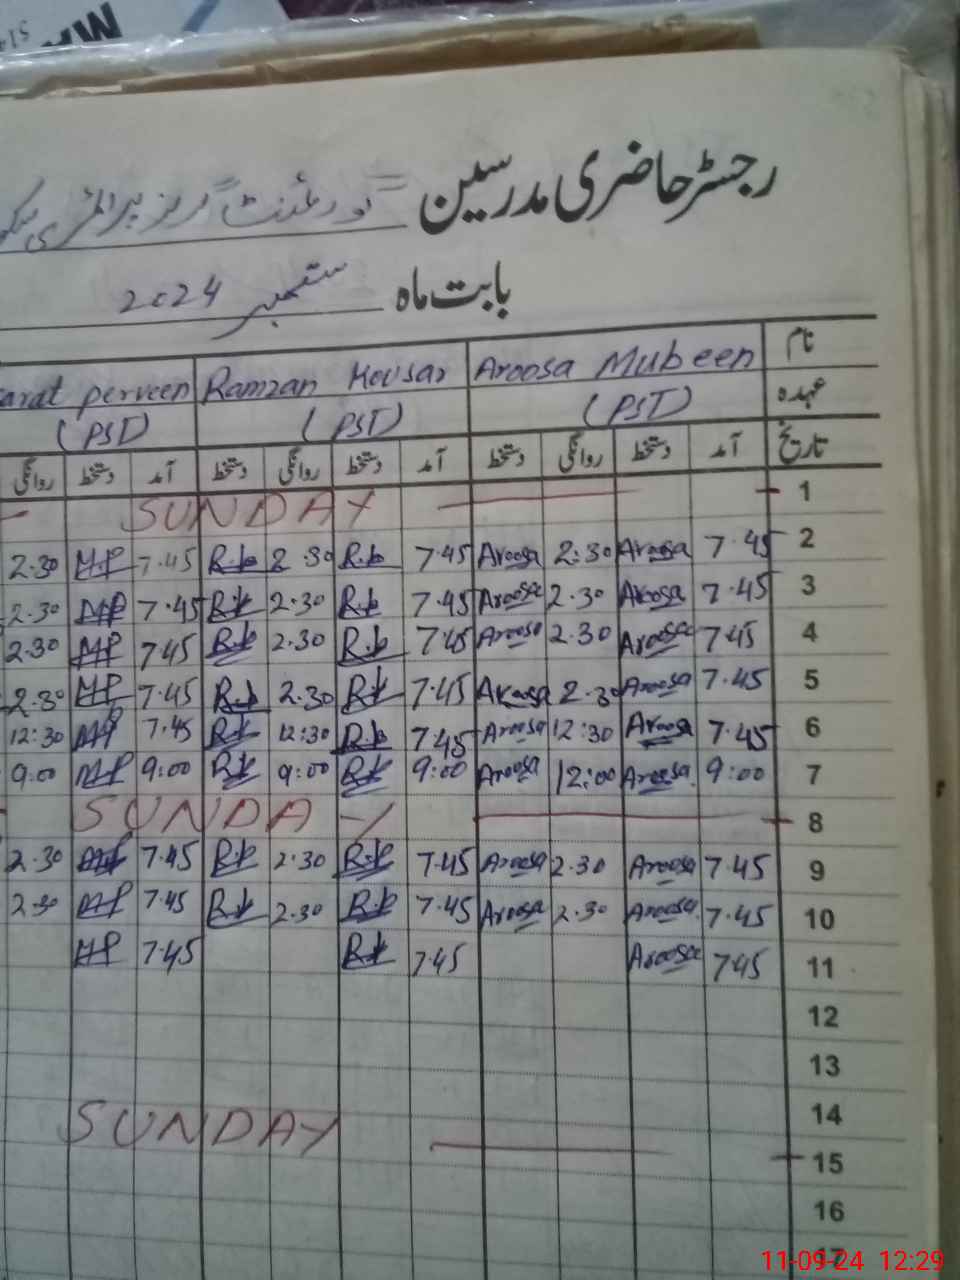 رجسٹر حاضری مدرسین گورنمنٹ گرلز پرائمری سکول
بابت ماہ ستمبر 2024
نام Aroosa Mubeen Ramzan Kousar arat perveen
عہدہ (PST) (PST) (PST)
تاریخ آمد دستخط روانگی دستخط آمد دستخط روانگی دستخط آمد دستخط روانگی
1 SUNDAY
2 7.45 Aroosa 2:30 Aroosa 7.45 R.k 2.30 R.k 7.45 MP 2.30
3 7.45 Aroosa 2.30 Aroosa 7.45 R.k 2.30 R.k 7.45 MP 2.30
4 7.45 Aroosa 2.30 Aroosa 7.45 R.k 2.30 R.k 7.45 MP 2.30
5 7.45 Aroosa 2.30 Aroosa 7.45 R.k 2.30 R.k 7.45 MP 2.30
6 7.45 Aroosa 12:30 Aroosa 7.45 R.k 12:30 R.k 7.45 MP 12:30
7 9:00 Aroosa 12:00 Aroosa 9:00 R.k 9:00 R.k 9:00 MP 9:00
8 SUNDAY
9 7.45 Aroosa 2.30 Aroosa 7.45 R.k 2.30 R.k 7.45 MP 2.30
10 7.45 Aroosa 2.30 Aroosa 7.45 R.k 2.30 R.k 7.45 MP 2.30
11 7.45 Aroosa 7.45 R.k 7.45 MP
12
13
14
15 SUNDAY
16
17
11-09-24 12:29